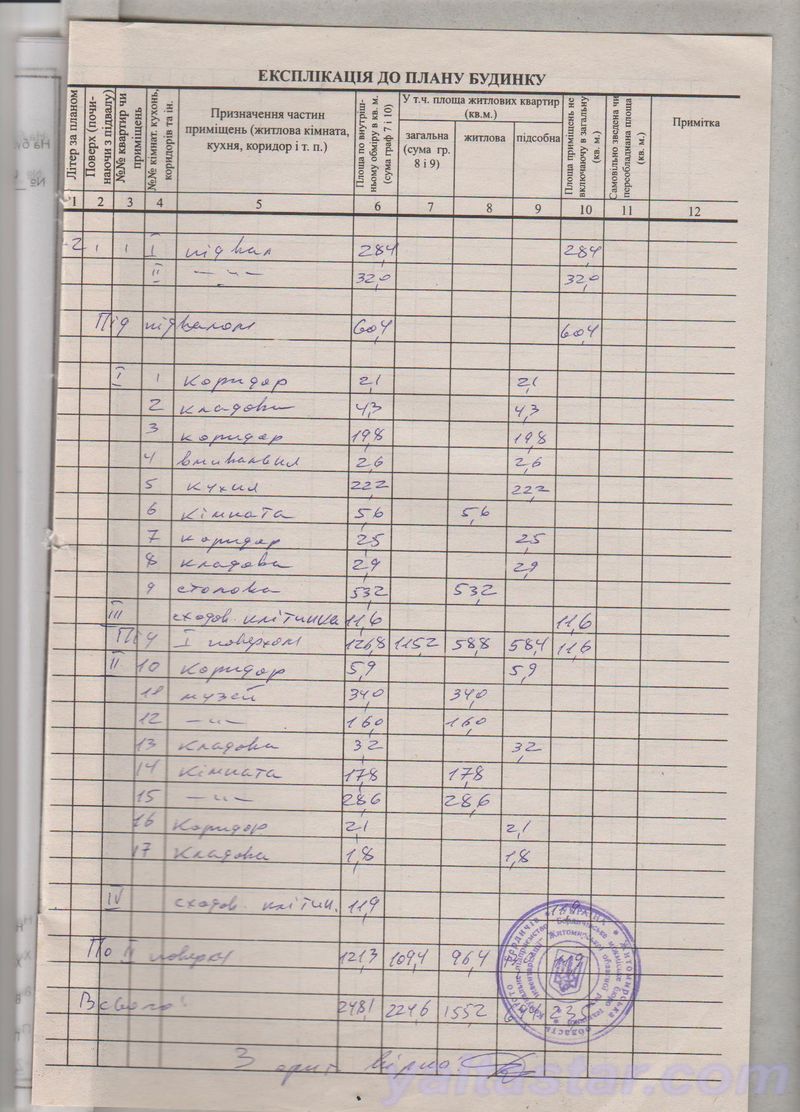 ЕКСПЛІКАЦІЯ ДО ПЛАНУ БУДИНКУ
Літер за планом | Поверх (почи-наючи з підвалу) | №№ квартир чи приміщень | №№ кімнат. кухонь, коридорів та ін. | Призначення частин приміщень (житлова кімната, кухня, коридор і т. п.) | Площа по внутріш-ньому обміру в кв. м. (сума граф 7 і 10) | У т.ч. площа житлових квартир (кв.м.) | загальна (сума гр. 8 і 9) | житлова | підсобна | Площа приміщень не включаючу в загальну (кв. м.) | Самовільно зведена чи переобладнана площа (кв. м.) | Примітка
1 2 3 4 5 6 7 8 9 10 11 12
2 1 1 I підвал 28,4 28,4
II —"— 32,0 32,0
Під підвалом 60,4 60,4
I 1 коридор 2,1 2,1
2 кладова 4,3 4,3
3 коридор 19,8 19,8
4 2,6 2,6
5 кухня 22,2 22,2
6 кімната 5,6 5,6
7 коридор 2,5 2,5
8 кладова 2,9 2,9
9 столова 53,2 53,2
III сходов. клітинка 11,6 11,6
Під I поверхом 126,8 115,2 58,8 58,4 11,6
II 10 коридор 5,9 5,9
музей 34,0 34,0
12 —"— 16,0 16,0
13 кладова 3,2 3,2
14 кімната 17,8 17,8
15 —"— 28,6 28,6
16 коридор 2,1 2,1
17 кладова 1,8 1,8
IV сходов. клітин. 11,9
По II поверху 121,3 109,4 96,4
Всього: 248,1 224,6 155,2
З вірно:
yaltastar.com